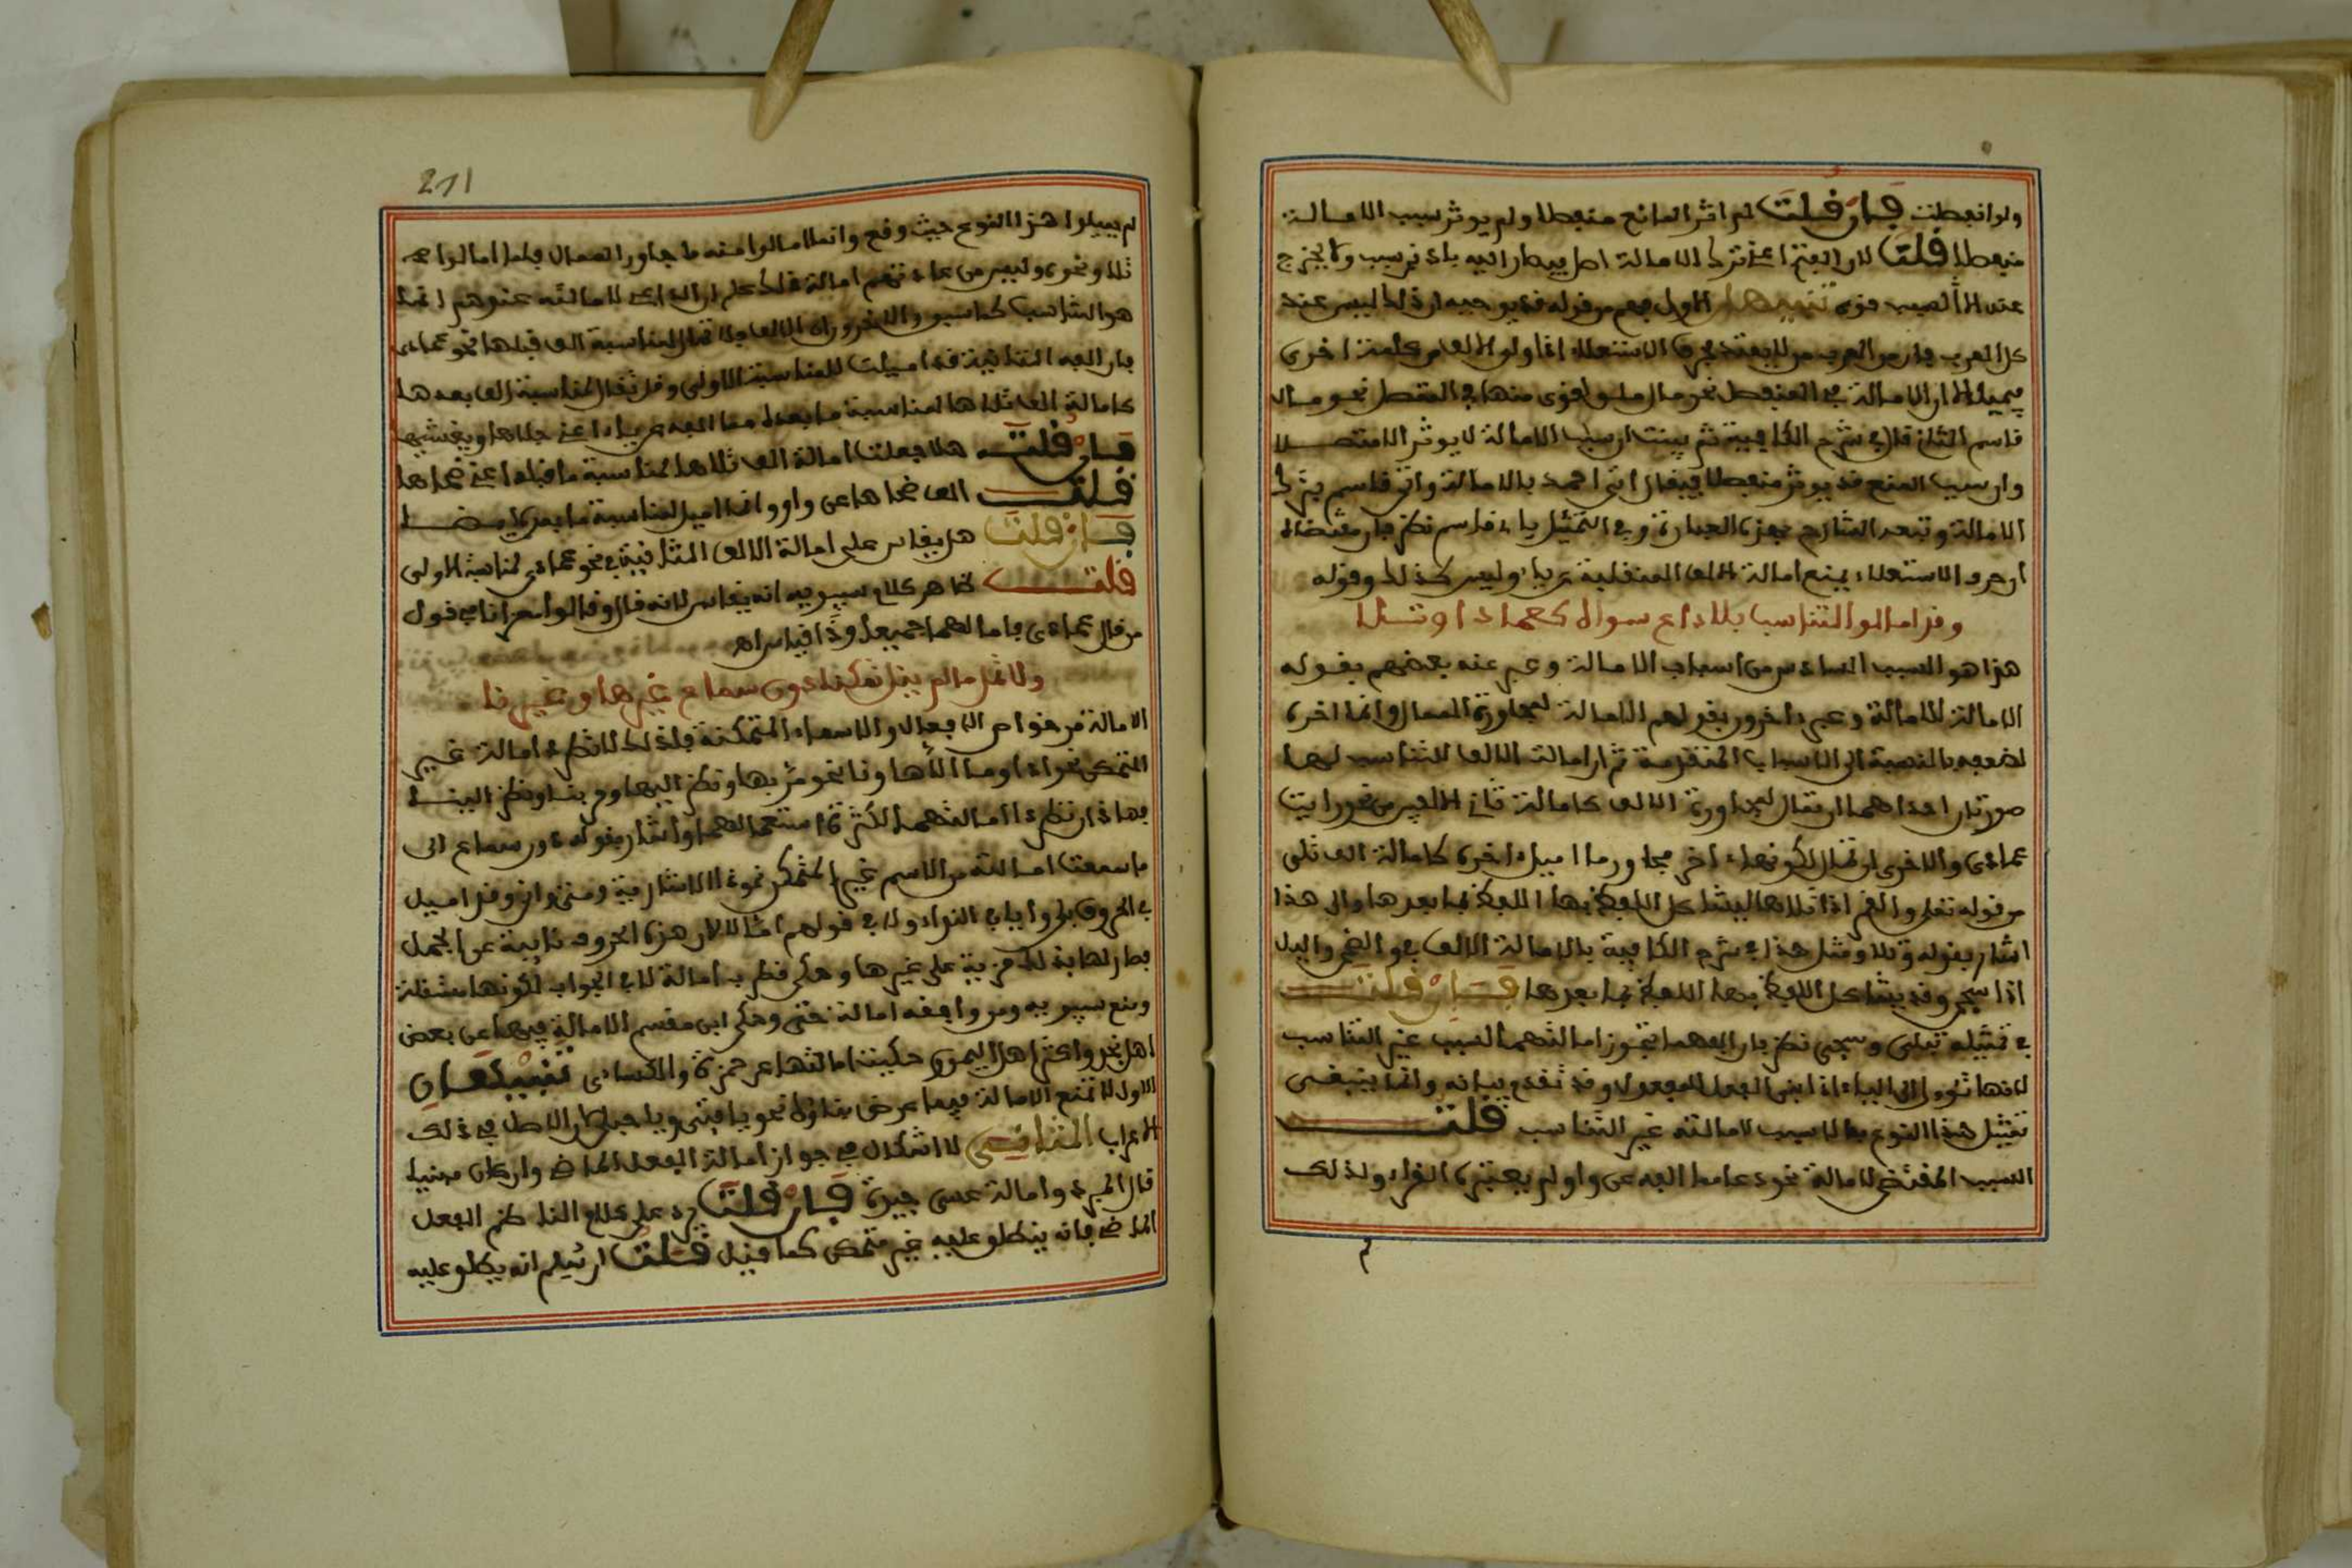 ولو انفصلت فإن قلت لم اثر المانع منفصلا ولم يوثر سبب الامالة
منفصلا قلت لان الفتح اعني ترك الامالة اصل فيصار اليه بادنى سبب ولا يخرج
عنه الا لسبب قوي تنبيهان الاول فهم من قوله قد يوجبه ان ذلك ليس عند
كل العرب فان من العرب من لا يعتد بحرف الاستعلاء اذا ولي الالف من كلمة اخرى
فيميل الا ان الامالة في المنفصل نحو مال ملق اقوى منها في المتصل نحو مال
قاسم الثاني قال في شرح الكافية ثم بينت ان سبب الامالة لا يوثر الا متصلا
وان سبب المنع قد يوثر منفصلا فيقال اتى احمد بالامالة واتى قاسم بترك
الامالة وتبعه الشارح في هذه العبارة وفي التمثيل باتى قاسم نظر فان مقتضاه
ان حرف الاستعلاء يمنع امالة الالف المنقلبة عن ياء وليس كذلك وقوله
وقد امالوا لتناسب بلا داع سواه كعمادا وتلا
هذا هو السبب السادس من اسباب الامالة وعبر عنه بعضهم بقوله
الامالة للامالة وعبر اخرون بقولهم الامالة لمجاورة الممال وانما اخره
لضعفه بالنسبة الى الاسباب المتقدمة ثم ان امالة الالف للتناسب لها
صورتان احداهما ان تمال لمجاورة الالف كامالة ثاني الالفين من نحو رايت
عمادى والاخرى ان تمال لكونها اخر مجاور ما اميل اخره كامالة الف تلى
من قوله تعلى والقمر اذا تلاها ليشاكل اللفظ بها اللفظ بما بعدها والى هذا
اشار بقوله وتلا ومثل هذا في شرح الكافية بالامالة الالف في والضحى واليل
اذا سجى وقد يشاكل اللفظ بها اللفظ بما بعدها فإن قلت
في تمثيله بتلى وسجى نظر فان الفهما تجوز امالتهما لسبب غير التناسب
لانها تئول الى الياء اذا بنى الفعل للمفعول وقد تقدم بيانه وانما ينبغى
تمثيل هذا النوع بما لا سبب لامالته غير التناسب قلت
السبب المقتضى لامالة نحو دعا مما الفه عن واو لم يعتبره القراء ولذلك
211
لم يميلوا هذا النوع حيث وقع وانما امالوا منه ما جاور الممال فلما امالوا
تلا ونحوه وليس من عادتهم امالة ذلك علم ان الداعي لامالته عندهم انما
هو التناسب كما سبق والاخرون ان الالف
فان الفه الثانية قد اميلت لمناسبة الاولى وقد تمال لمناسبة الف بعدها
كامالة الف تلاها لمناسبة ما بعدها مما الفه عن ياء اعني جلاها ويغشيها
فإن قلت هلا جعلت امالة الف تلاها لمناسبة ما قبلها اعني ضحاها
قلت الف ضحاها عن واو وانما اميل لمناسبة ما بعده ايضا
فإن قلت هل يقاس على امالة الالف الثانية في نحو عمادى لمناسبة الاولى
قلت ظاهر كلام سيبويه انه يقاس لانه قال وقالوا معزانا في قول
من قال عمادى فامالهما جميعا وذا قياس اه
ولا تمل ما لم ينل تمكنا دون سماع غيرها وغير نا
الامالة من خواص الافعال والاسماء المتمكنة فلذلك لا تطرد امالة غير
المتمكن نحو اذا وما الا ها ونا نحو مر بها ونظر اليها ومر بنا ونظر الينا
فهاذان تطرد امالتهما لكثرة استعمالهما واشار بقوله دون سماع الى
ما سمعت امالته من الاسم غير المتمكن نحو ذا الاشارية ومتى وانى وقد اميل
في الحروف بلى ويا في النداء ولا في قولهم امالا لان هذه الحروف نايبة عن الجمل
فصار لها بذلك مزية على غيرها وحكى قطرب امالة لا في الجواب لكونها مستقلة
ومنع سيبويه ومن وافقه امالة حتى وحكى ابن مقسم الامالة فيها عن بعض
اهل نجد واكثر اهل اليمن وحكيت امالتها عن حمزة والكسائى تنبيهان
الاول لا تمنع الامالة فيما عرض بناؤه نحو يا فتى ويا حبلى لان الاصل في ذلك
الاعراب الثاني لا اشكال في جواز امالة الفعل الماضي وان كان مبنيا
قال المبرد وامالة عسى جيدة فإن قلت يرد على كلام الناظم الفعل
الماضي فانه ينطلق عليه غير متمكن كما قيل قلت ان سلم انه يطلق عليه